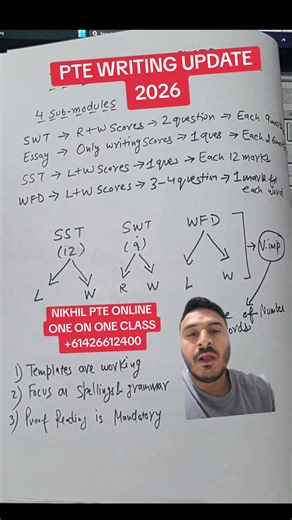 PTE WRITING UPDATE
2026
4 Sub-modules
SWT → R+W Scores → 2 question → Each 9
Essay → Only writing Scores → 1 ques → Each
SST → L+W Scores → 1 ques → Each 12 marks
WFD → L+W Scores → 3-4 question → 1 mark for each word
SST SWT WFD
(12) (9) V.imp
L W R W L W
NIKHIL PTE ONLINE
ONE ON ONE CLASS
+61426612400
of Number
1) Templates are working
2) Focus on Spellings & grammar
3) Proof Reading is Mandatory